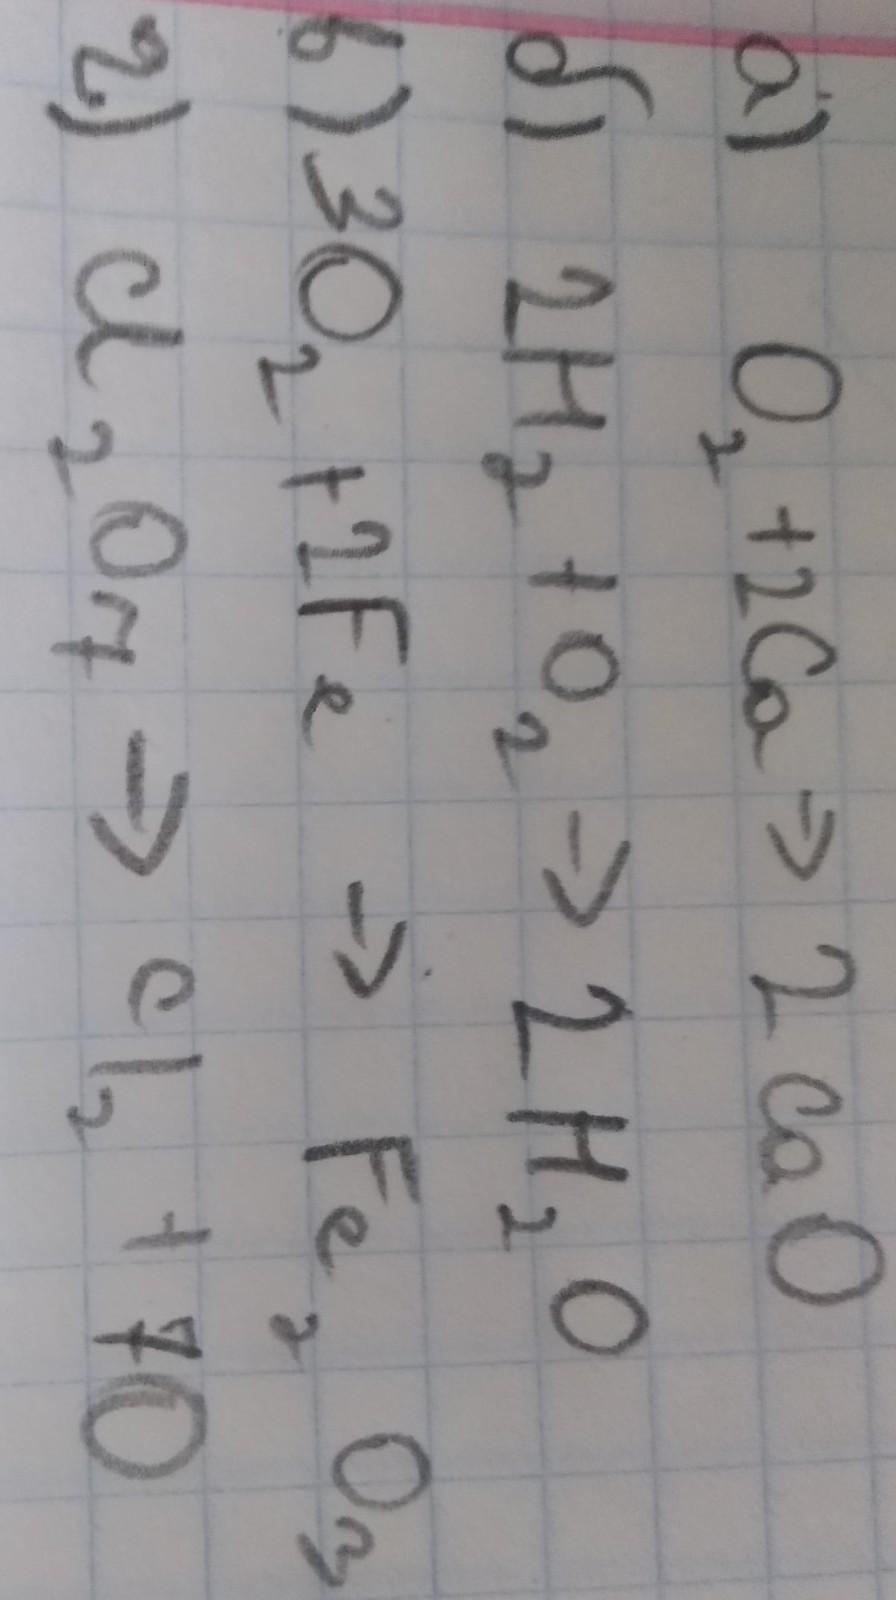 а) O₂ + 2Ca → 2CaO
б) 2H₂ + O₂ → 2H₂O
в) 3O₂ + 2Fe → Fe₂O₃
г) Cl₂O₇ → Cl₂ + 7O